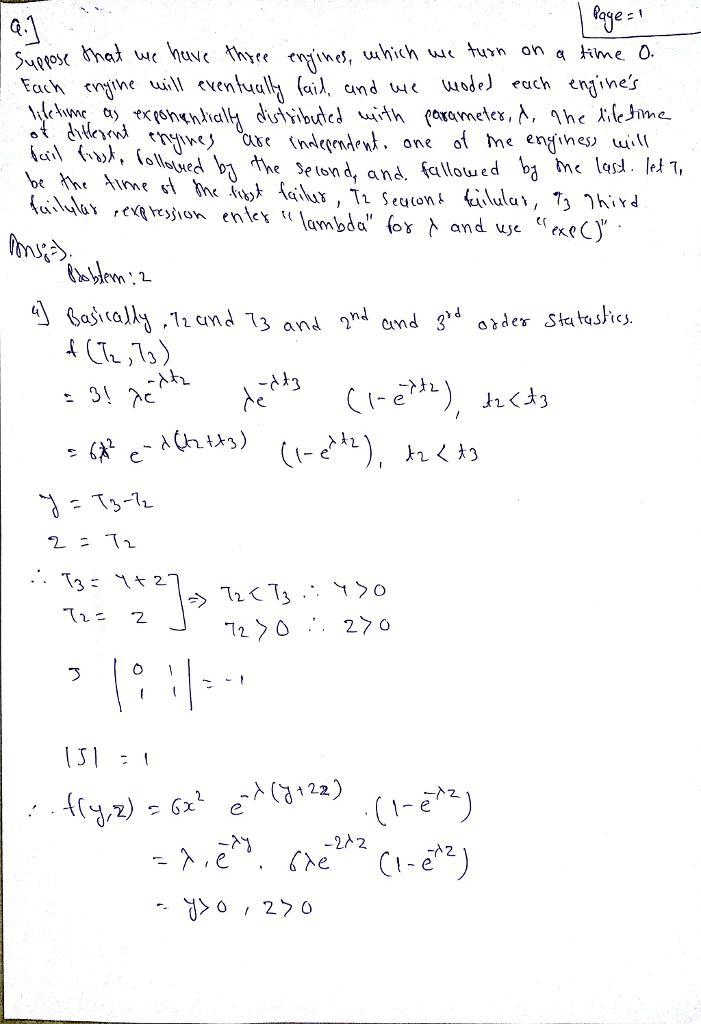 Q.]
Page = 1
Suppose that we have three engines, which we turn on a time 0.
Each engine will eventually fail, and we model each engine's
lifetime as exponentially distributed with parameter, λ, The lifetime
of different engines are independent. one of the enginess will
fail first, followed by the second, and. fallowed by the last. let T,
be the time of the first failur, T2 seacond failular, T3 Third
failular, expression enter "lambda" for λ and use "exp()".
Ans:⇒).
Problem: 2
a] Basically, T2 and T3 and 2nd and 3rd order statastics.
f(T2, T3)
= 3! λe^-λt2 λe^-λt3 (1-e^-λt2), t2<t3
= 6λ² e^-λ(t2+t3) (1-e^λt2), t2<t3
y = T3-T2
z = T2
∴ T3 = y+z ] ⇒ T2<T3 ∴ y>0
T2 = z T2>0 ∴ z>0
J |0 1|
|1 1| = -1
|J| = 1
∴ f(y,z) = 6x² e^-λ(y+2z) .(1-e^-λz)
= λ.e^-λy. 6λe^-2λz (1-e^-λz)
= y>0, z>0